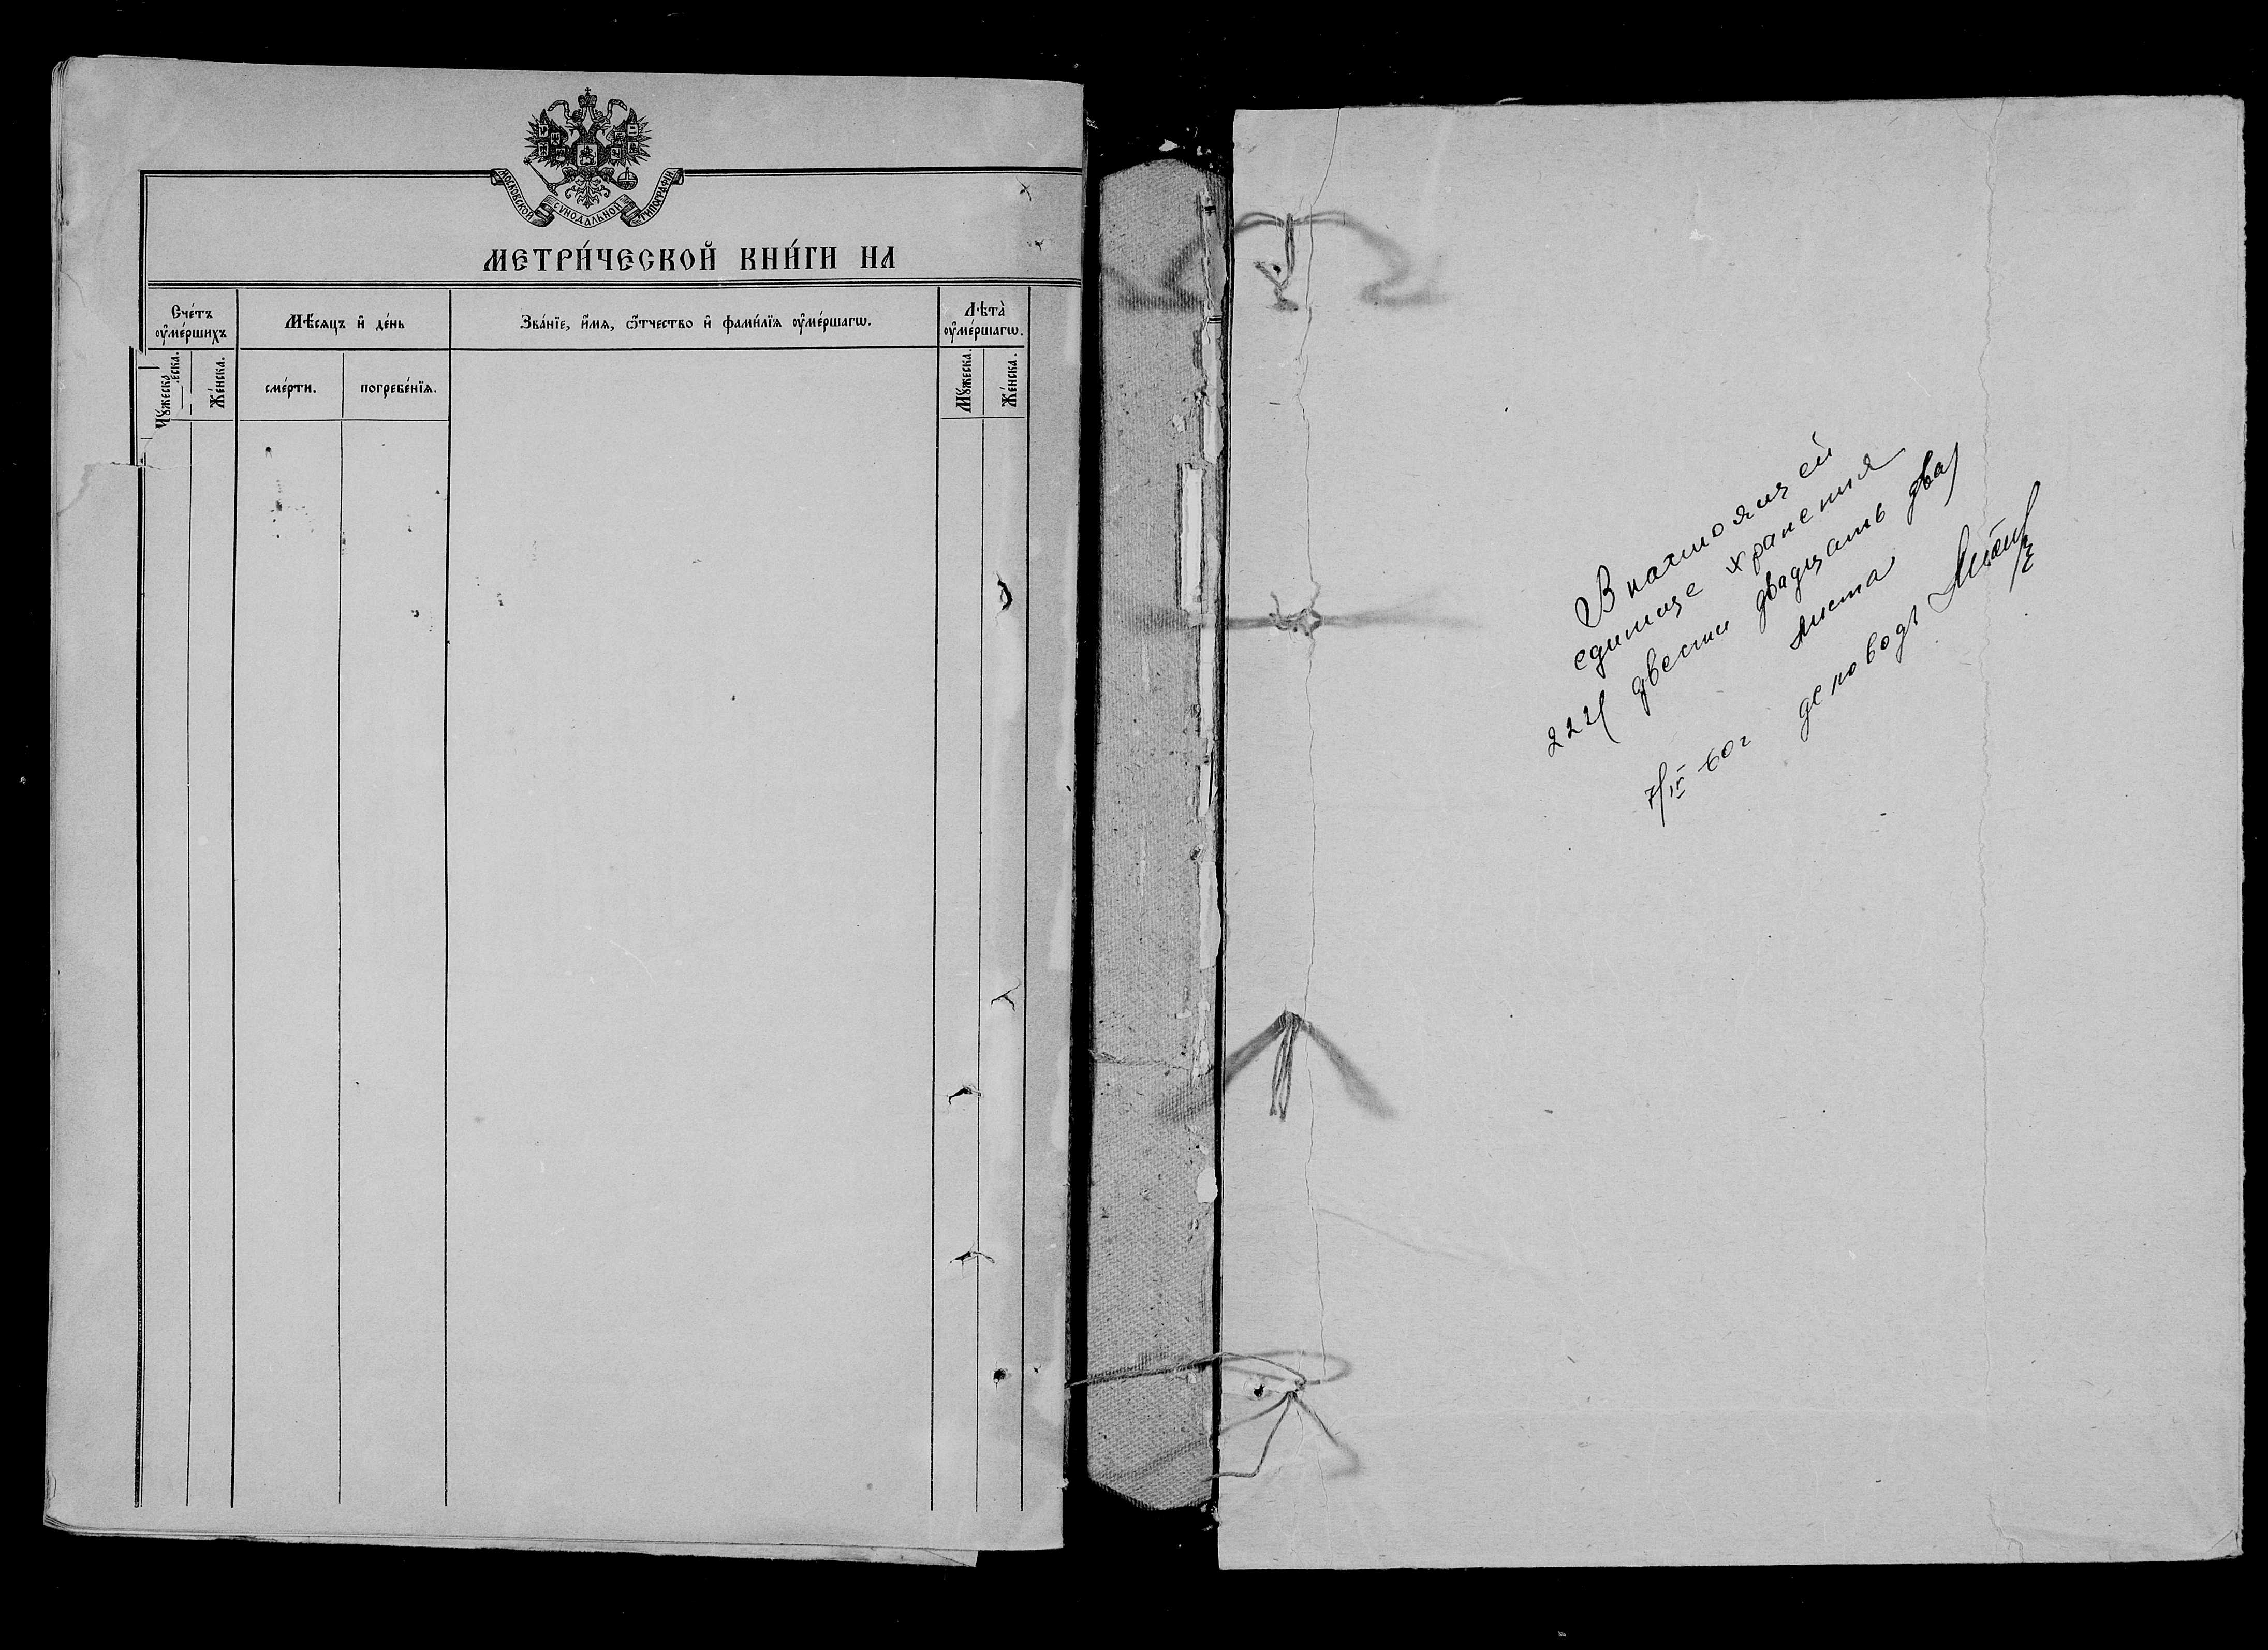 МОСКОВСКОЙ СУНОДАЛЬНОЙ ТИПОГРАФІИ
МЕТРИ́ЧЕСКОЙ КНИ́ГИ НА
Сче́тъ
оу҆ме́ршихъ
Мѣ́сяцъ и҆ де́нь
Зва́нїе, и҆́мя, ѻ҆́тчество и҆ фами́лїя оу҆ме́ршагѡ.
Лѣта̀
оу҆ме́ршагѡ.
Мꙋ́жеска
еска.
Же́нска.
сме́рти.
погребе́нїя.
Мꙋ́жеска.
Же́нска.
В настоящей
единице хранения
222 (двести двадцать два)
листа
7/IV-60г деловодъ